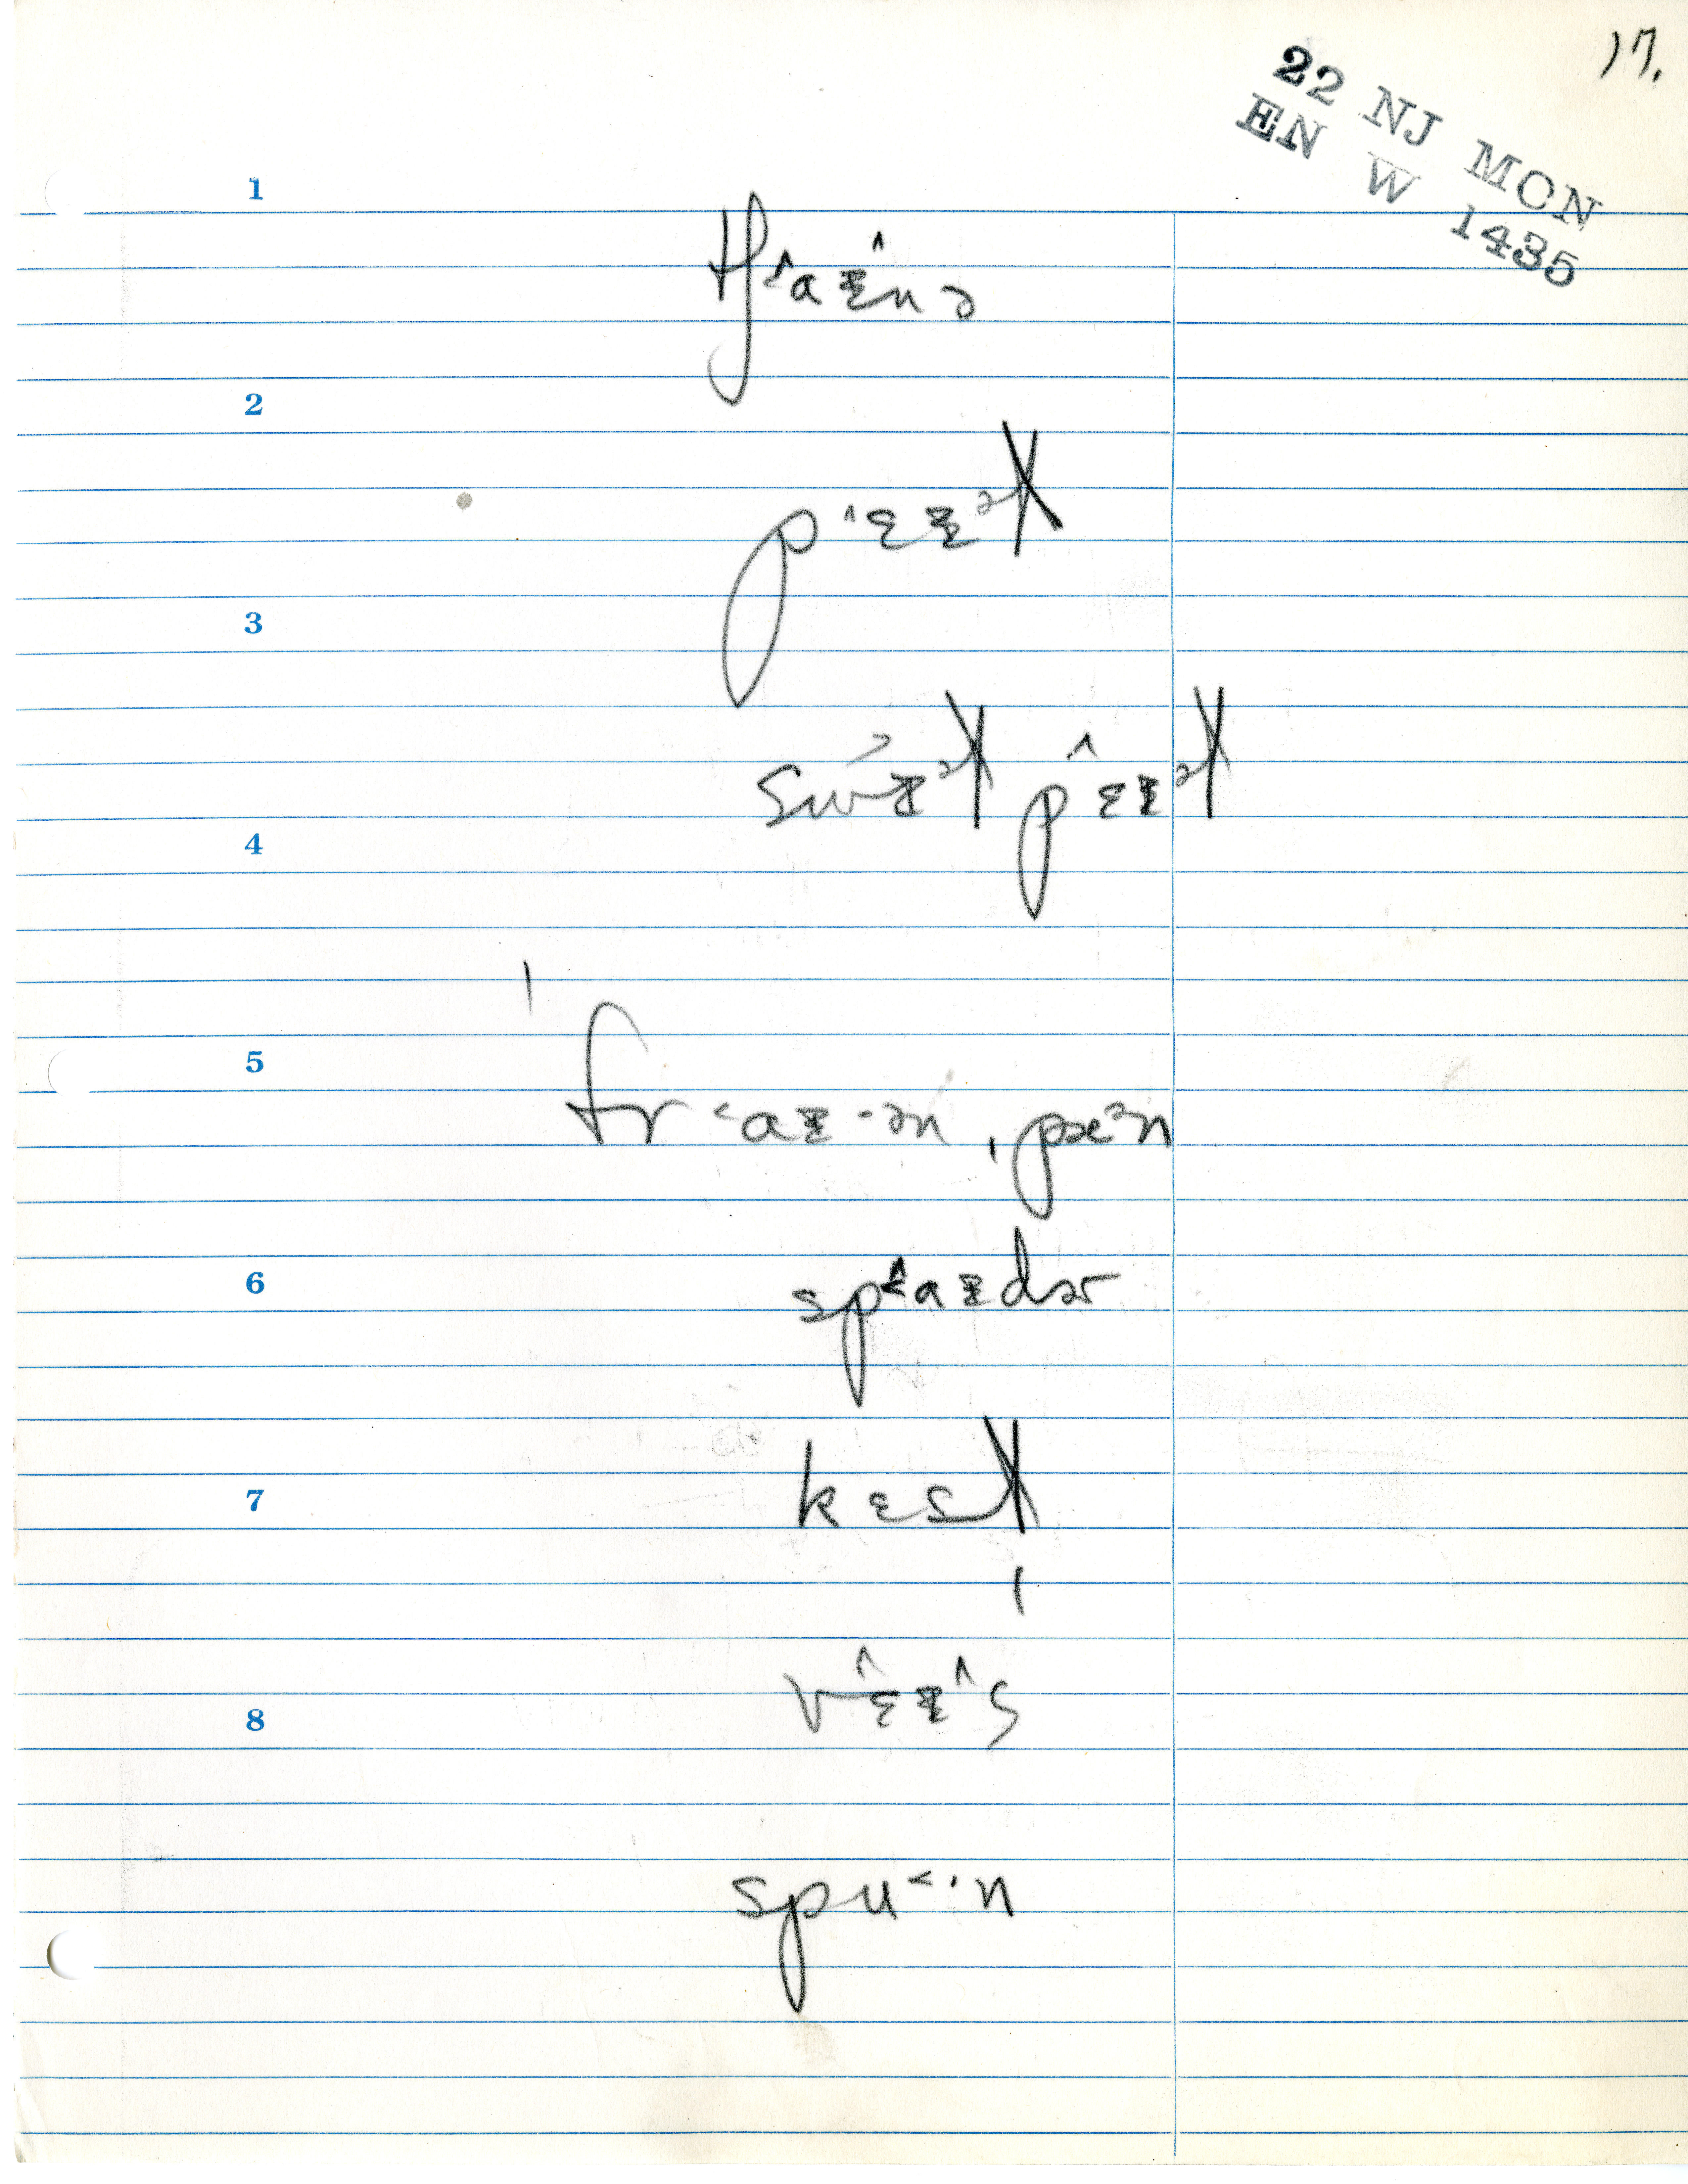 17.
22 NJ MON
EN W 1435
1
tʃ˂aɪ˄nə
2
p˄ɛɪᵊt
3
swɪᵊt p˄ɛɪᵊt
4
5
ˈfr˂aɪ·ən ˌpæᵊn
6
sp˂aɪdər
7
kɛst
8
v˄ɛɪ˄s
spu˂·n